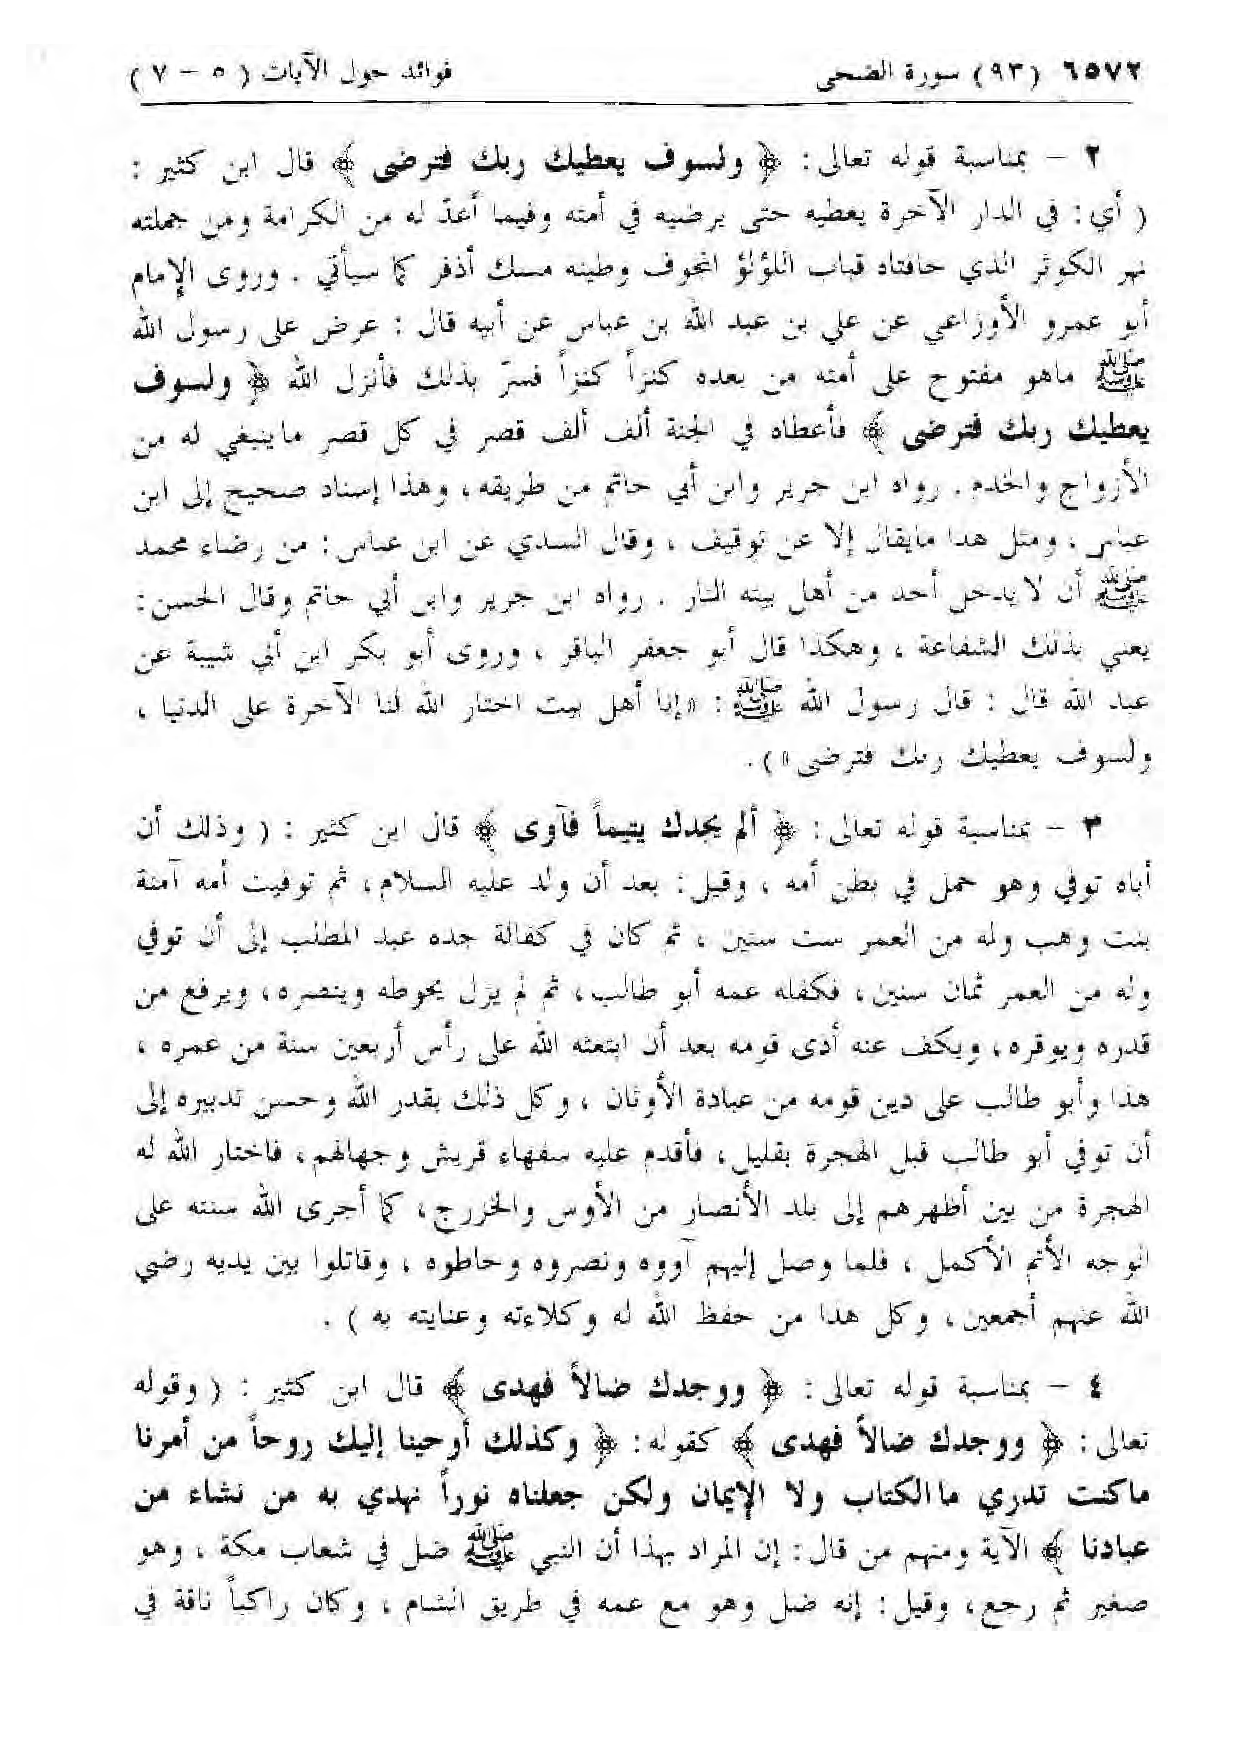 ٦٥٧٢ (٩٣) سورة الضحى فوائد حول الآيات ( ٥ – ٧ )
٢ – بمناسبة قوله تعالى : ﴿ ولسوف يعطيك ربك فترضى ﴾ قال ابن كثير :
( أي : في الدار الآخرة يعطيه حتى يرضيه في أمته وفيما أعدّ له من الكرامة ومن جملته
نهر الكوثر الذي حافتاه قباب اللؤلؤ المجوف وطينه مسك أذفر كما سيأتي . وروى الإمام
أبو عمرو الأوزاعي عن علي بن عبد الله بن عباس عن أبيه قال : عرض على رسول الله
ﷺ ماهو مفتوح على أمته من بعده كنزاً كنزاً فسرّ بذلك فأنزل الله ﴿ ولسوف
يعطيك ربك فترضى ﴾ فأعطاه في الجنة ألف ألف قصر في كل قصر ماينبغي له من
الأزواج والخدم . رواه ابن جرير وابن أبي حاتم من طريقه ، وهذا إسناد صحيح إلى ابن
عباس ، ومثل هذا مايقال إلا عن توقيف ، وقال السدي عن ابن عباس : من رضاء محمد
ﷺ أن لا يدخل أحد من أهل بيته النار . رواه ابن جرير وابن أبي حاتم وقال الحسن :
يعني بذلك الشفاعة ، وهكذا قال أبو جعفر الباقر ، وروى أبو بكر ابن أبي شيبة عن
عبد الله قال : قال رسول الله ﷺ : « إنا أهل بيت اختار الله لنا الآخرة على الدنيا ،
ولسوف يعطيك ربك فترضى » ) .
٣ – بمناسبة قوله تعالى : ﴿ ألم يجدك يتيماً فآوى ﴾ قال ابن كثير : ( وذلك أن
أباه توفي وهو حمل في بطن أمه ، وقيل : بعد أن ولد عليه السلام ، ثم توفيت أمه آمنة
بنت وهب وله من العمر ست سنين ، ثم كان في كفالة جده عبد المطلب إلى أن توفي
وله من العمر ثمان سنين ، فكفله عمه أبو طالب ، ثم لم يزل يحوطه وينصره ، ويرفع من
قدره ويوقره ، ويكف عنه أذى قومه بعد أن ابتعثه الله على رأس أربعين سنة من عمره ،
هذا وأبو طالب على دين قومه من عبادة الأوثان ، وكل ذلك بقدر الله وحسن تدبيره إلى
أن توفي أبو طالب قبل الهجرة بقليل ، فأقدم عليه سفهاء قريش وجهالهم ، فاختار الله له
الهجرة من بين أظهرهم إلى بلد الأنصار من الأوس والخزرج ، كما أجرى الله سنته على
الوجه الأتم الأكمل ، فلما وصل إليهم آووه ونصروه وحاطوه ، وقاتلوا بين يديه رضي
الله عنهم أجمعين ، وكل هذا من حفظ الله له وكلاءته وعنايته به ) .
٤ – بمناسبة قوله تعالى : ﴿ ووجدك ضالاً فهدى ﴾ قال ابن كثير : ( وقوله
تعالى : ﴿ ووجدك ضالاً فهدى ﴾ كقوله : ﴿ وكذلك أوحينا إليك روحاً من أمرنا
ماكنت تدري ما الكتاب ولا الإيمان ولكن جعلناه نوراً نهدي به من نشاء من
عبادنا ﴾ الآية ومنهم من قال : إن المراد بهذا أن النبي ﷺ ضل في شعاب مكة ، وهو
صغير ثم رجع ، وقيل : إنه ضل وهو مع عمه في طريق الشام ، وكان راكباً ناقة في